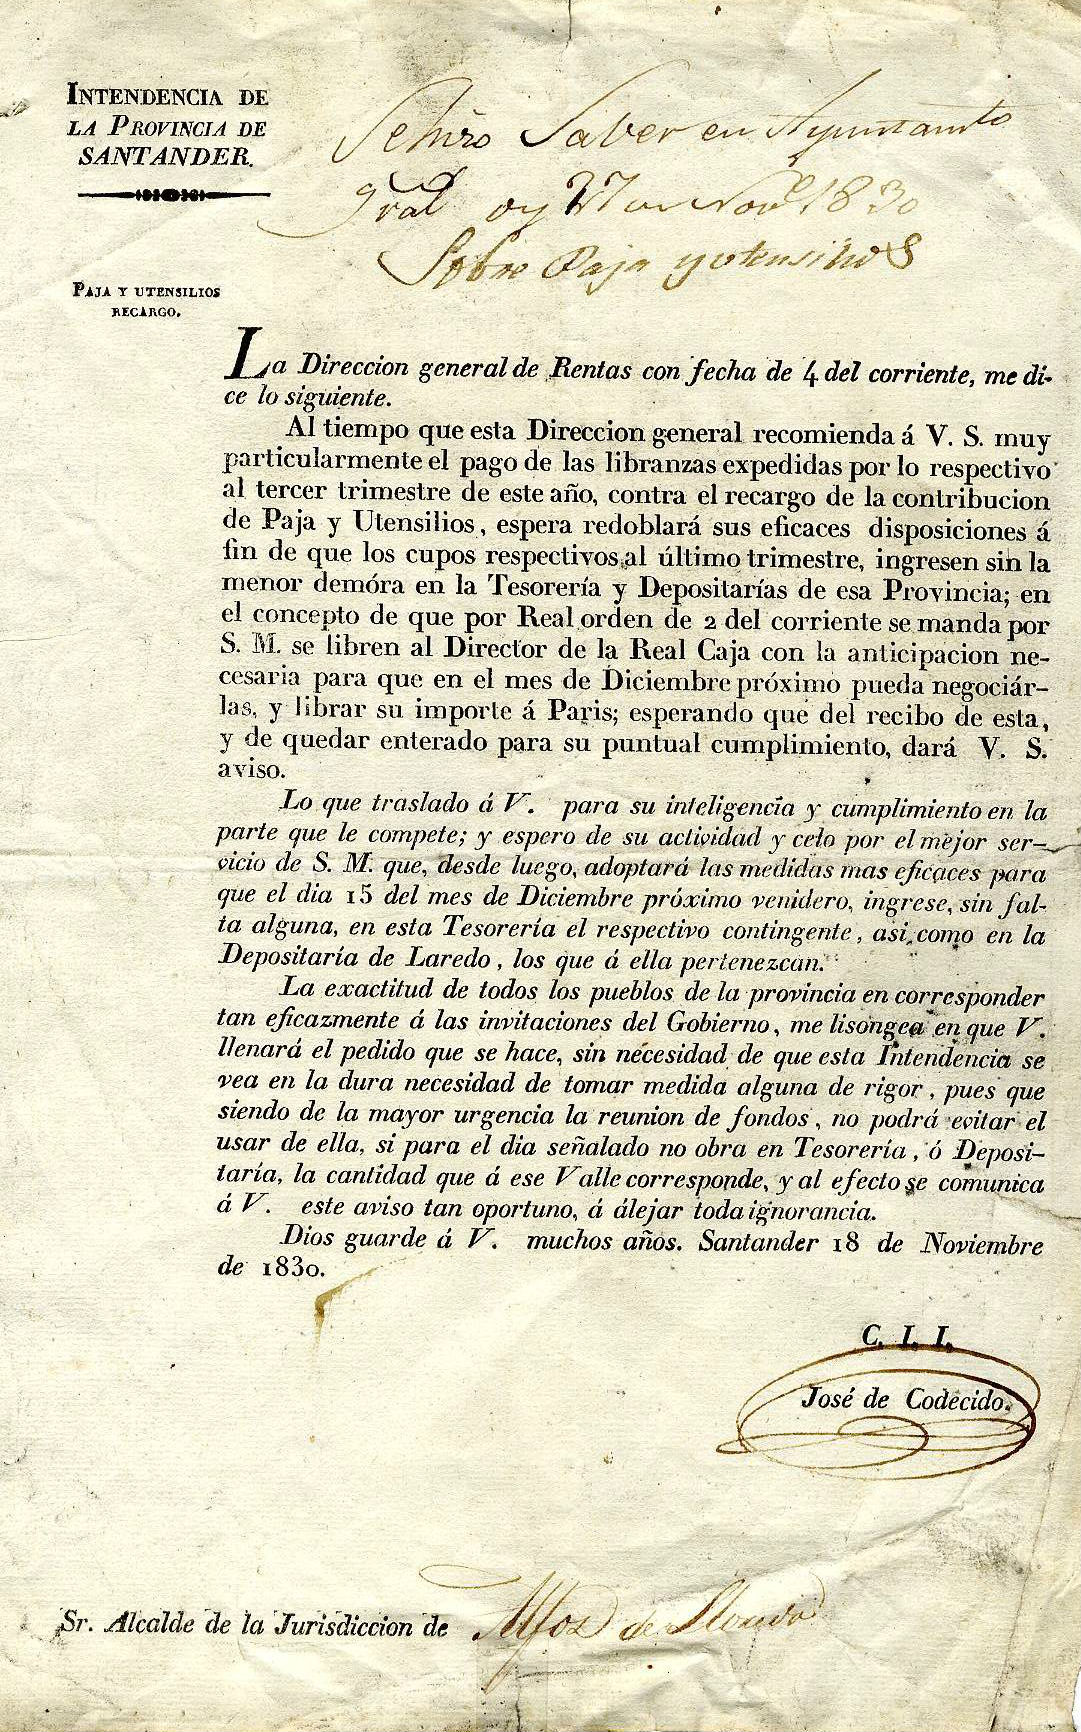 INTENDENCIA DE
LA PROVINCIA DE
SANTANDER.
Se hizo Saber en Ayuntamto
Gral oy 27 de Nove 1830
Sobre Paja y utensilios
PAJA Y UTENSILIOS
RECARGO.
La Direccion general de Rentas con fecha de 4 del corriente, me di-
ce lo siguiente.
Al tiempo que esta Direccion general recomienda á V. S. muy
particularmente el pago de las libranzas expedidas por lo respectivo
al tercer trimestre de este año, contra el recargo de la contribucion
de Paja y Utensilios, espera redoblará sus eficaces disposiciones á
fin de que los cupos respectivos al último trimestre, ingresen sin la
menor demóra en la Tesorería y Depositarías de esa Provincia; en
el concepto de que por Real orden de 2 del corriente se manda por
S. M. se libren al Director de la Real Caja con la anticipacion ne-
cesaria para que en el mes de Diciembre próximo pueda negociár-
las, y librar su importe á Paris; esperando que del recibo de esta,
y de quedar enterado para su puntual cumplimiento, dará V. S.
aviso.
Lo que traslado á V. para su inteligencia y cumplimiento en la
parte que le compete; y espero de su actividad y celo por el mejor ser-
vicio de S. M. que, desde luego, adoptará las medidas mas eficaces para
que el dia 15 del mes de Diciembre próximo venidero, ingrese, sin fal-
ta alguna, en esta Tesorería el respectivo contingente, asi como en la
Depositaría de Laredo, los que á ella pertenezcan.
La exactitud de todos los pueblos de la provincia en corresponder
tan eficazmente á las invitaciones del Gobierno, me lisongea en que V.
llenará el pedido que se hace, sin necesidad de que esta Intendencia se
vea en la dura necesidad de tomar medida alguna de rigor, pues que
siendo de la mayor urgencia la reunion de fondos, no podrá evitar el
usar de ella, si para el dia señalado no obra en Tesorería, ó Deposi-
taría, la cantidad que á ese Valle corresponde, y al efecto se comunica
á V. este aviso tan oportuno, á álejar toda ignorancia.
Dios guarde á V. muchos años. Santander 18 de Noviembre
de 1830.
C. I. I.
José de Codecido.
Sr. Alcalde de la Jurisdiccion de Alfoz de Lloredo